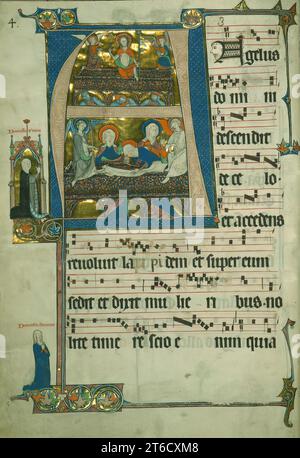 4.
3
Agelus
do mi ni
descendit
de ce lo
et accedens
reuoluit la pi dem et super eum
sedit et dixit mu lie ri bus no
lite time re scio e nim quia
alamy
Image ID: 2T6CXM8
www.alamy.com